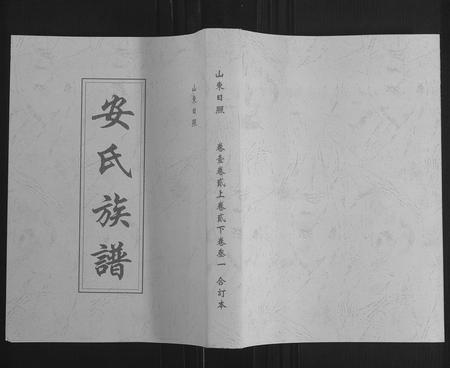 安氏族譜
山東日照
山東日照
卷壹卷貳上卷貳下卷叁一 合訂本